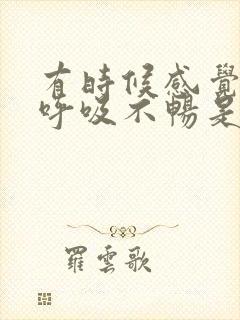 有時候感覺
呼吸不暢是
羅雲歌